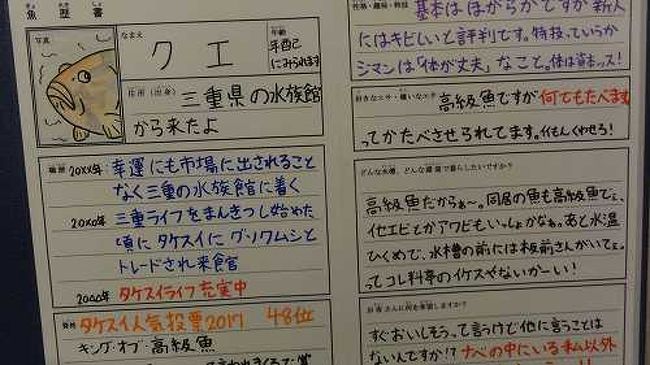 魚歴書
写真
なまえ
クエ
年齢
年相応
にみられます
住所(出身)
三重県の水族館
から来たよ
職歴
20XX年 幸運にも市場に出されること
なく三重の水族館に着く
20X0年 三重ライフをまんきつし始めた
頃にタケスイにグソクムシと
トレードされ来館
2000年 タケスイライフ充実中
発見 タケスイ人気投票2017 48位
キング・オブ・高級魚
性格・趣味・特技
基本はほがらかですが新人
にはキビしいと評判です。特技、ていうか
ジマンは「体が丈夫」なこと。体は資本っス!
好きなエサ・嫌いなエサ
高級魚ですが何でもたべます
ってかたべさせられてます。イイもんくわせろ!
どんな水槽、どんな環境で暮らしたいですか?
高級魚だからぁ〜。同居の魚も高級魚でぇ、
イセエビとかアワビもいっしょかなぁ。あと水温
ひくめで、水槽の前には板前さんがいてぇ。
ってコレ料亭のイケスやないかーい!
お客さんに何を希望しますか?
すぐおいしそうって言うけど他に言うことは
ないんですか!?ナベの中にいる私以外